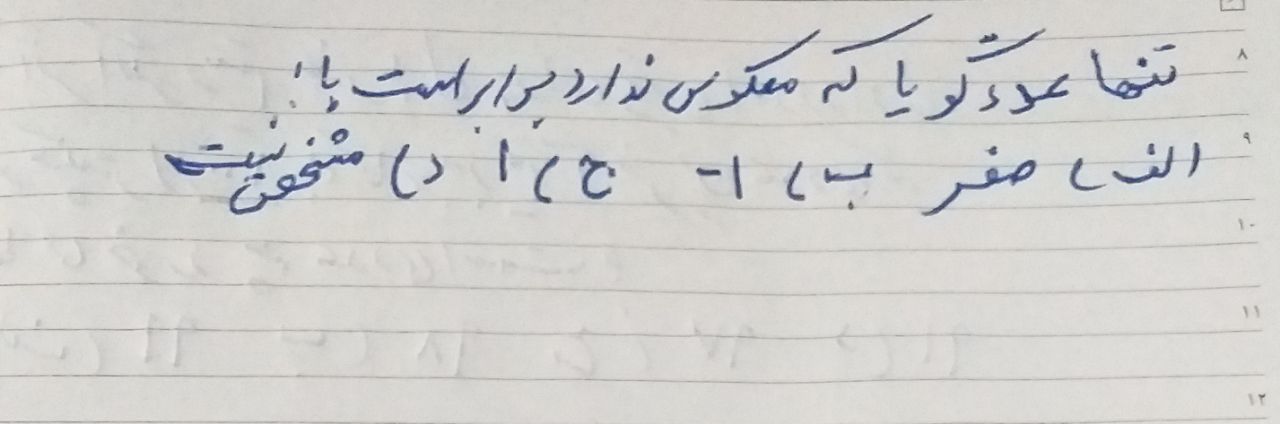 تنها عدد گویا که معکوس ندارد برابر است با:
الف) صفر ب) ۱- ج) ۱ د) مشخص نیست
۸
۹
۱۰
۱۱
۱۲